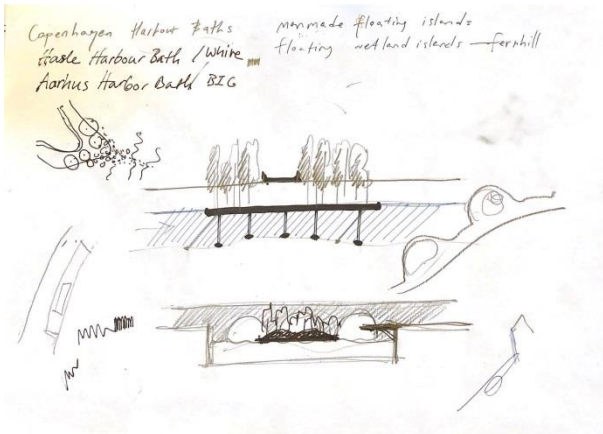 Copenhagen Harbour Baths
Hasle Harbour Bath / White
Aarhus Harbor Bath BIG
manmade floating islands
floating wetland islands — fernhill